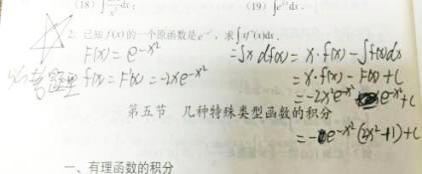 (18) ∫ dx.
(19) ∫e dx.
2. 已知f(x)的一个原函数是e^{-x²}, 求∫xf'(x)dx.
F(x) = e^{-x²}
必考题型 f(x) = F'(x) = -2xe^{-x²}
=∫x df(x) = x·f(x) - ∫f(x)dx
= x·f(x) - F(x) + C
= -2x²e^{-x²} e^{-x²} + C
= -e^{-x²}(2x²+1) + C
第五节 几种特殊类型函数的积分
一、有理函数的积分